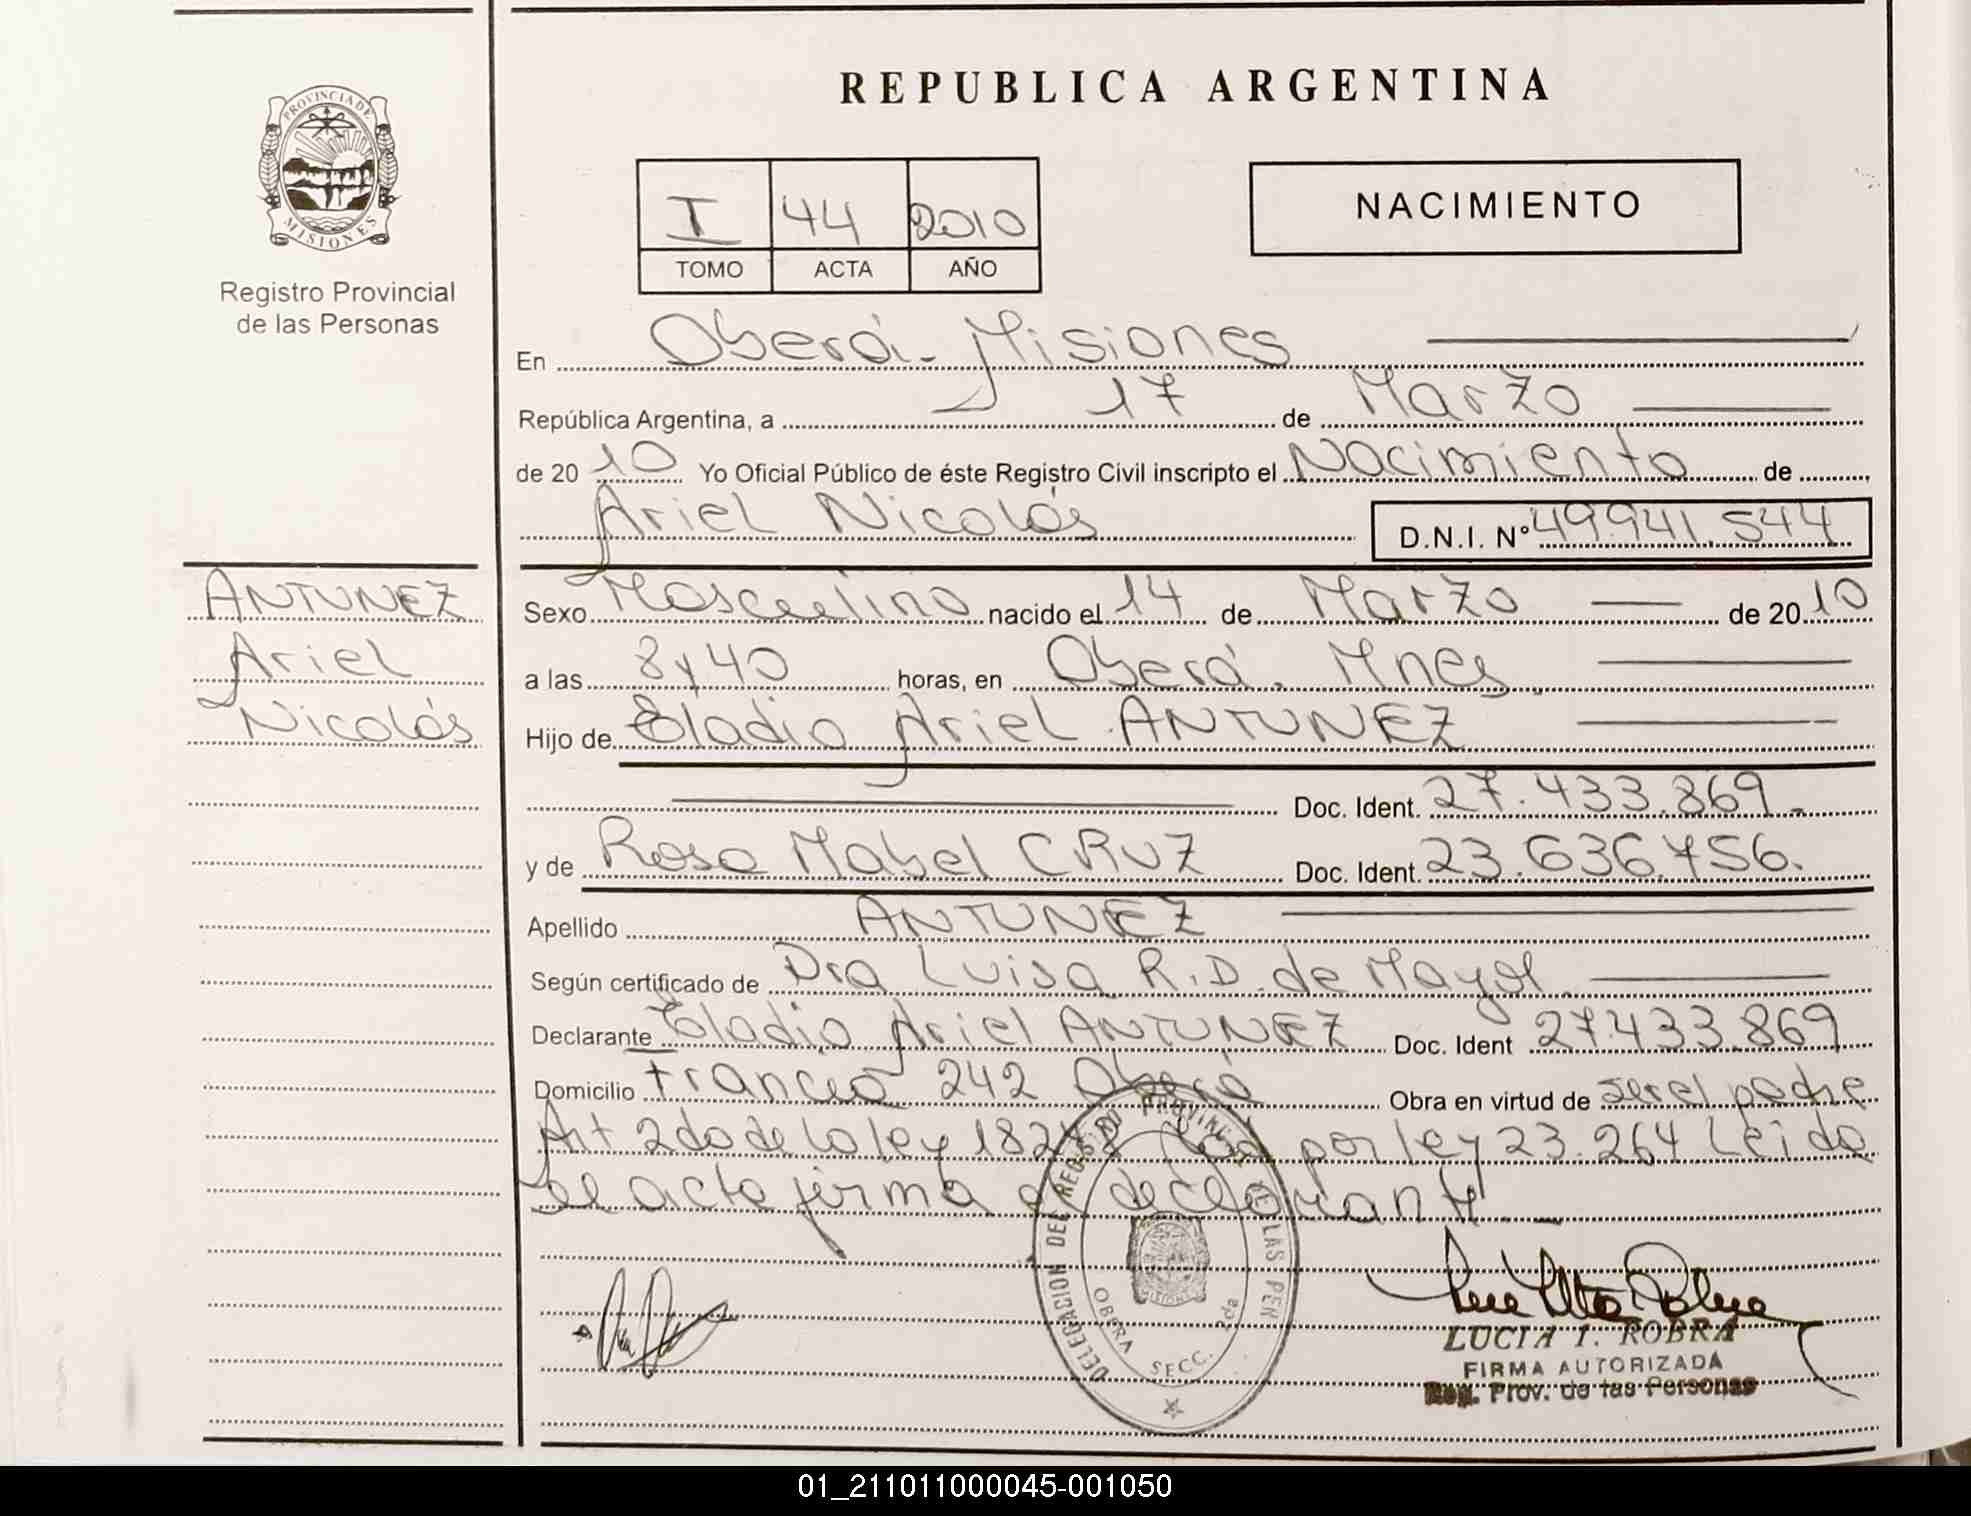 REPUBLICA ARGENTINA
PROVINCIA DE
MISIONES
Registro Provincial
de las Personas
I 44 2010
TOMO ACTA AÑO
NACIMIENTO
En Oberá - Misiones
República Argentina, a 17 de Marzo
de 20 10 Yo Oficial Público de éste Registro Civil inscripto el Nacimiento de
Ariel Nicolás D.N.I. Nº 49.941.544
ANTUNEZ
Ariel
Nicolás
Sexo Masculino nacido el 14 de Marzo de 20 10
a las 8 y 40 horas, en Oberá. Mnes.
Hijo de Eladio Ariel ANTUNEZ
Doc. Ident. 27.433.869.-
y de Rosa Mabel CRUZ Doc. Ident. 23.636.756.
Apellido ANTUNEZ
Según certificado de Dra Luisa R.D. de Mayol
Declarante Eladio Ariel ANTUNEZ Doc. Ident 27.433.869
Domicilio Francia 242 Oberá Obra en virtud de ser el padre
Art 2do de la ley 18248 por ley 23.264 Leida
el acta firma el declarante
DELEGACION DEL REGISTRO PROVINCIAL DE LAS PER
OBERA SECC. 2da
MISIONES
LUCIA I. ROBRA
FIRMA AUTORIZADA
Reg. Prov. de las Personas
01_211011000045-001050